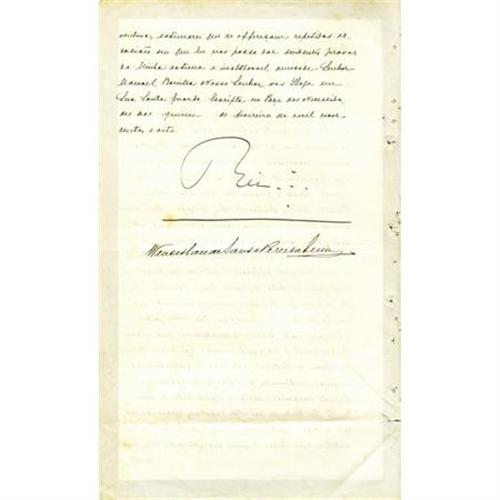 ventura, estimarei que se offereçam repetidas oc
casiões em que lu vos possa dar evidentes provas
da Minha estima e inalteravel amizade. Senhor
Manuel Bonilla Nosso Senhor vos Haja em
Sua Santa Guarda. Escripta no Paço das Necessida
des aos quinze de fevereiro de mil nove
centos e oito.
Rei
Wenceslau de Sousa Pereira Lima